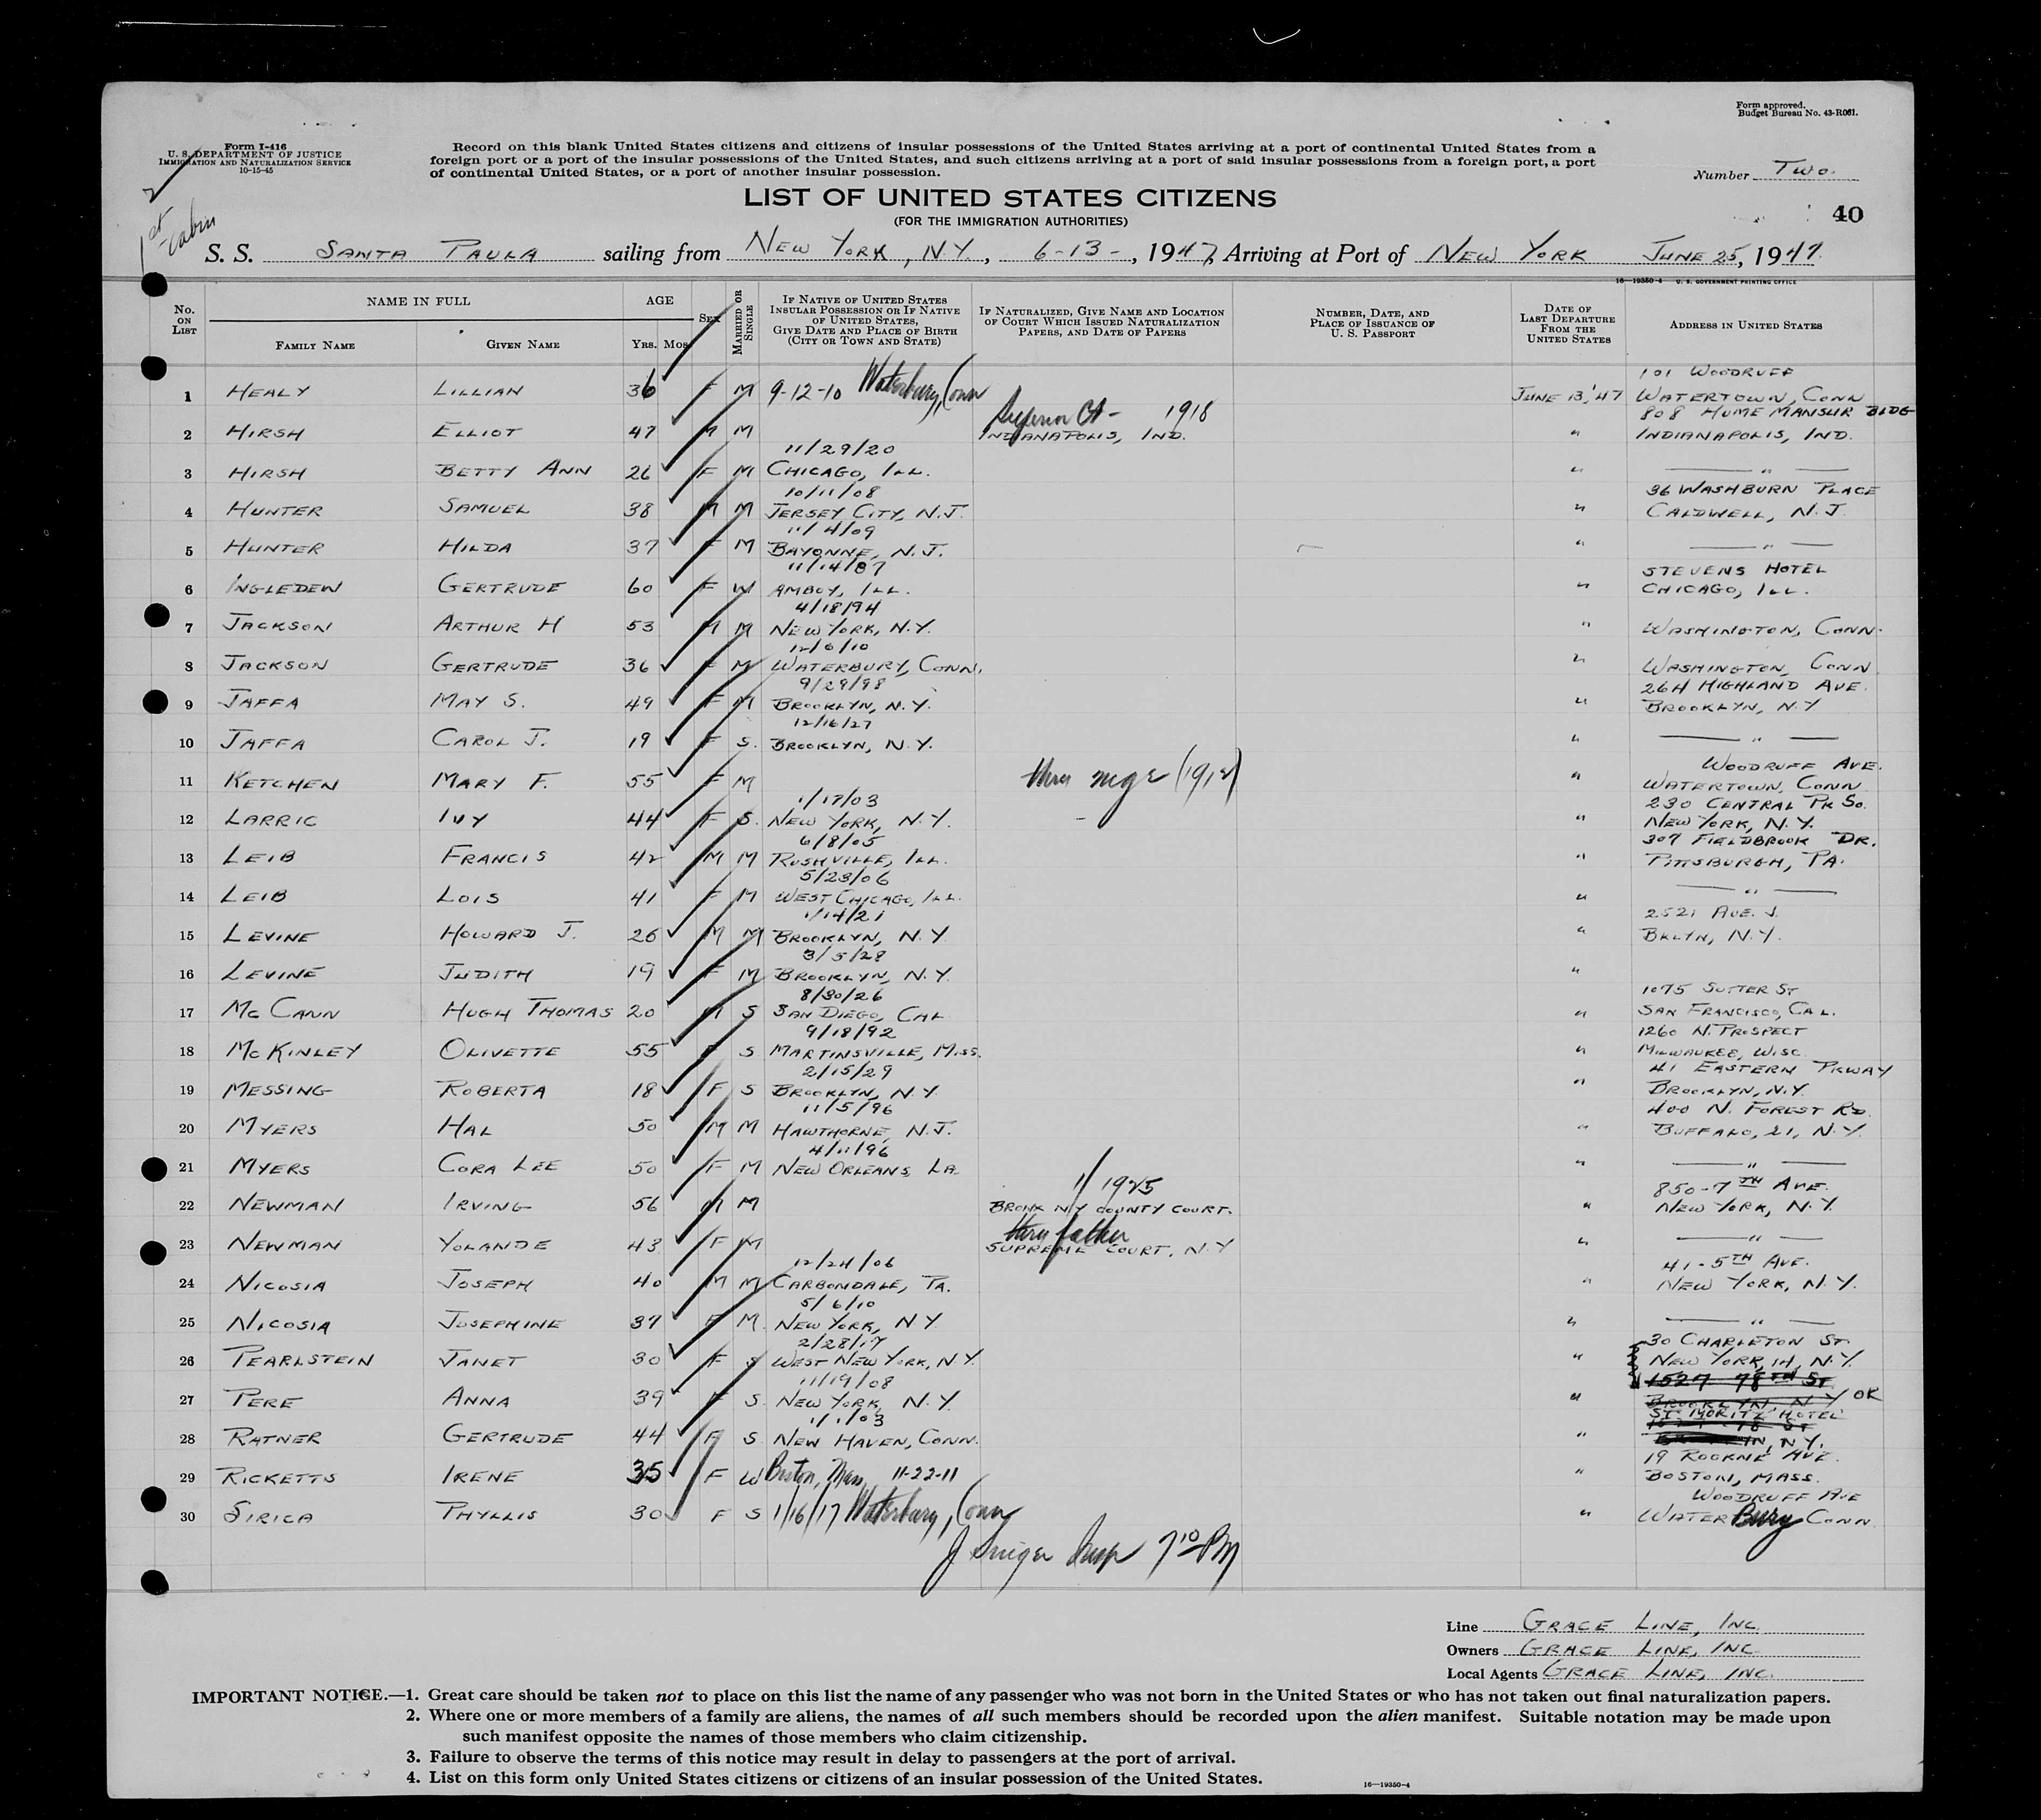 Form approved.
Budget Bureau No. 43-R061.
Form I-416
U. S. DEPARTMENT OF JUSTICE
IMMIGRATION AND NATURALIZATION SERVICE
10-15-45
1st Cabin
Record on this blank United States citizens and citizens of insular possessions of the United States arriving at a port of continental United States from a
foreign port or a port of the insular possessions of the United States, and such citizens arriving at a port of said insular possessions from a foreign port, a port
of continental United States, or a port of another insular possession.
Number Two.
LIST OF UNITED STATES CITIZENS
(FOR THE IMMIGRATION AUTHORITIES)
40
S. S. SANTA PAULA sailing from NEW YORK, N.Y., 6-13-, 1947, Arriving at Port of NEW YORK JUNE 25, 1947.
16—19350-4 U. S. GOVERNMENT PRINTING OFFICE
No. ON LIST
NAME IN FULL
FAMILY NAME
GIVEN NAME
AGE
YRS. MOS.
SEX
MARRIED OR SINGLE
IF NATIVE OF UNITED STATES INSULAR POSSESSION OR IF NATIVE OF UNITED STATES, GIVE DATE AND PLACE OF BIRTH (CITY OR TOWN AND STATE)
IF NATURALIZED, GIVE NAME AND LOCATION OF COURT WHICH ISSUED NATURALIZATION PAPERS, AND DATE OF PAPERS
NUMBER, DATE, AND PLACE OF ISSUANCE OF U. S. PASSPORT
DATE OF LAST DEPARTURE FROM THE UNITED STATES
ADDRESS IN UNITED STATES
1 HEALY LILLIAN 36 F M 9-12-10 Waterbury, Conn JUNE 13,'47 101 WOODRUFF WATERTOWN, CONN
2 HIRSH ELLIOT 47 M M Superior Ct - 1918 INDIANAPOLIS, IND. " 808 HUME MANSUR BLDG INDIANAPOLIS, IND.
3 HIRSH BETTY ANN 26 F M 11/29/20 CHICAGO, ILL. " "
4 HUNTER SAMUEL 38 M M 10/11/08 JERSEY CITY, N.J. " 36 WASHBURN PLACE CALDWELL, N.J.
5 HUNTER HILDA 37 F M 11/4/09 BAYONNE, N.J. " "
6 INGLEDEW GERTRUDE 60 F W 11/14/87 AMBOY, ILL. " STEVENS HOTEL CHICAGO, ILL.
7 JACKSON ARTHUR H 53 M M 4/18/94 NEW YORK, N.Y. " WASHINGTON, CONN.
8 JACKSON GERTRUDE 36 F M 12/6/10 WATERBURY, CONN. " WASHINGTON, CONN
9 JAFFA MAY S. 49 F M 9/29/98 BROOKLYN, N.Y. " 264 HIGHLAND AVE. BROOKLYN, N.Y
10 JAFFA CAROL J. 19 F S. 12/16/27 BROOKLYN, N.Y. " "
11 KETCHEN MARY F. 55 F M thru mge (1912) " WOODRUFF AVE. WATERTOWN, CONN
12 LARRIC IVY 44 F S. 1/17/03 NEW YORK, N.Y. " 230 CENTRAL PK SO. NEW YORK, N.Y.
13 LEIB FRANCIS 42 M M 6/8/05 RUSHVILLE, ILL. " 307 FIELDBROOK DR. PITTSBURGH, PA.
14 LEIB LOIS 41 F M 5/23/06 WEST CHICAGO, ILL. " "
15 LEVINE HOWARD J. 26 M M 1/14/21 BROOKLYN, N.Y " 2521 AVE. J. BKLYN, N.Y.
16 LEVINE JUDITH 19 F M 3/5/28 BROOKLYN, N.Y. "
17 McCANN HUGH THOMAS 20 M S 8/30/26 SAN DIEGO, CAL " 1075 SUTTER ST SAN FRANCISCO, CAL.
18 McKINLEY OLIVETTE 55 F S 9/18/92 MARTINSVILLE, MISS. " 1260 N. PROSPECT MILWAUKEE, WISC.
19 MESSING ROBERTA 18 F S 2/15/29 BROOKLYN, N.Y " 41 EASTERN PKWAY BROOKLYN, N.Y.
20 MYERS HAL 50 M M 11/5/96 HAWTHORNE, N.J. " 400 N. FOREST RD. BUFFALO, 21, N.Y.
21 MYERS CORA LEE 50 F M 4/11/96 NEW ORLEANS, LA. " "
22 NEWMAN IRVING 56 M M 1/1925 BRONX NY COUNTY COURT. " 850-7TH AVE. NEW YORK, N.Y.
23 NEWMAN YOLANDE 43 F M thru father SUPREME COURT, N.Y " "
24 NICOSIA JOSEPH 40 M M 12/24/06 CARBONDALE, PA. " 41-5TH AVE. NEW YORK, N.Y.
25 NICOSIA JOSEPHINE 37 F M. 5/6/10 NEW YORK, NY " "
26 PEARLSTEIN JANET 30 F S 2/28/17 WEST NEW YORK, N.Y. " 30 CHARLETON ST. NEW YORK, 14, N.Y.
27 PERE ANNA 39 F S. 11/19/08 NEW YORK, N.Y. " 1527 78TH ST BROOKLYN, N.Y OK
28 RATNER GERTRUDE 44 F S 1/1/03 NEW HAVEN, CONN. " ST. MORITZ HOTEL N.Y.
29 RICKETTS IRENE 35 F W Boston, Mass, 11-22-11 " 19 ROCKNE AVE. BOSTON, MASS.
30 SIRICA PHYLLIS 30 F S 1/16/17 Waterbury, Conn " WOODRUFF AVE WATERBury CONN.
7 10 PM
Line GRACE LINE, INC.
Owners GRACE LINE, INC.
Local Agents GRACE LINE, INC.
IMPORTANT NOTICE.—1. Great care should be taken not to place on this list the name of any passenger who was not born in the United States or who has not taken out final naturalization papers.
2. Where one or more members of a family are aliens, the names of all such members should be recorded upon the alien manifest. Suitable notation may be made upon
such manifest opposite the names of those members who claim citizenship.
3. Failure to observe the terms of this notice may result in delay to passengers at the port of arrival.
4. List on this form only United States citizens or citizens of an insular possession of the United States.
16—19350-4